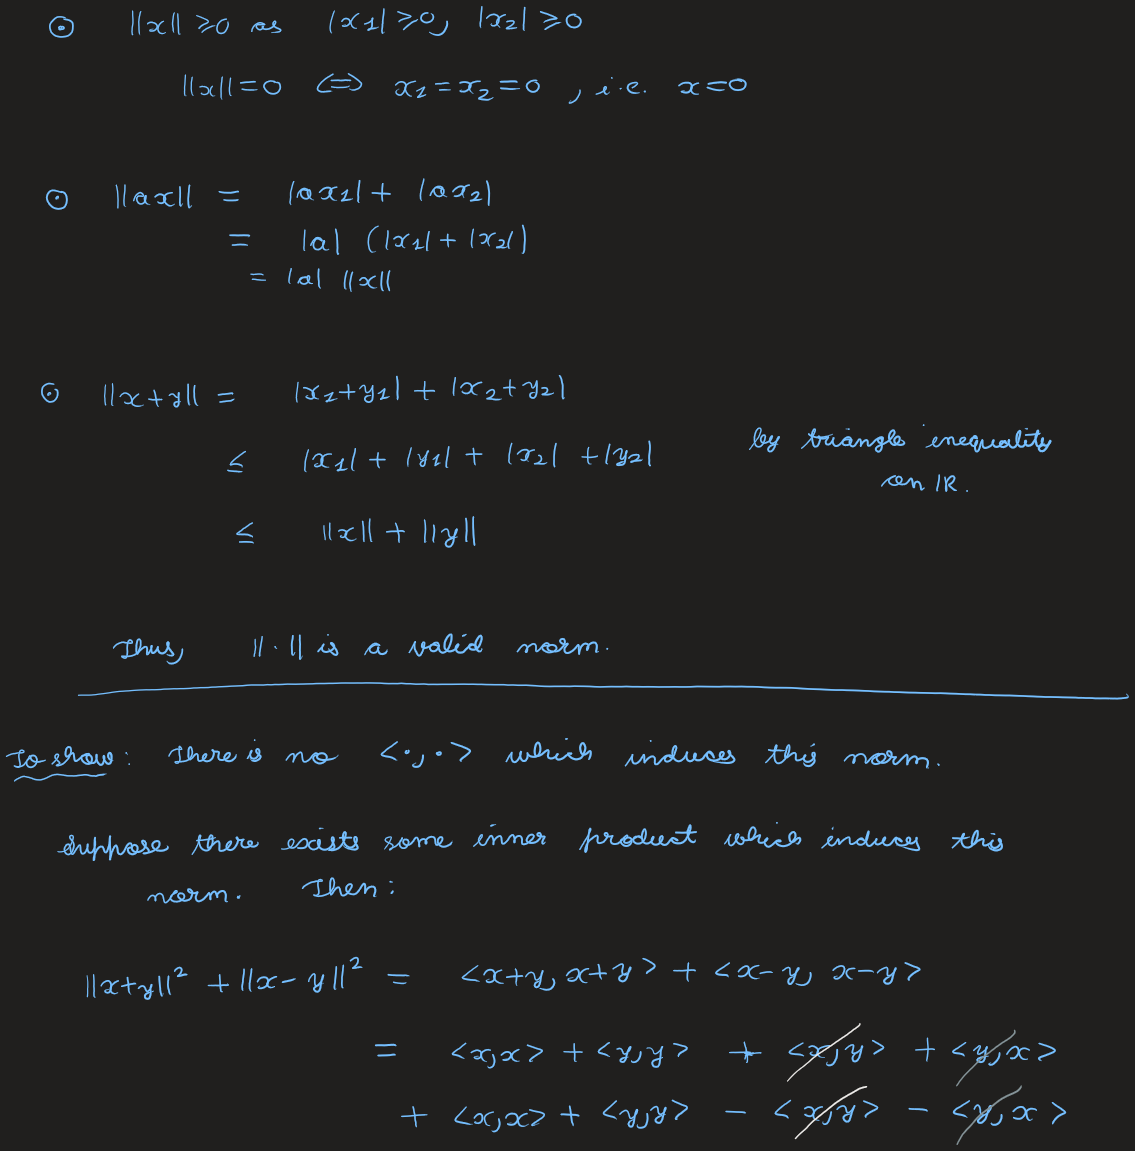 ⊙ ||x|| ≥0 as |x1| ≥0, |x2| ≥0
||x||=0 ⟺ x1=x2=0 , i.e. x=0
⊙ ||ax|| = |ax1| + |ax2|
= |a| (|x1| + |x2|)
= |a| ||x||
⊙ ||x+y|| = |x1+y1| + |x2+y2|
≤ |x1| + |y1| + |x2| + |y2| by triangle inequality
on IR.
≤ ||x|| + ||y||
Thus, ||·|| is a valid norm.
To show: There is no <·,·> which induces this norm.
Suppose there exists some inner product which induces this
norm. Then:
||x+y||² + ||x-y||² = <x+y, x+y> + <x-y, x-y>
= <x,x> + <y,y> + <x,y> + <y,x>
+ <x,x> + <y,y> - <x,y> - <y,x>